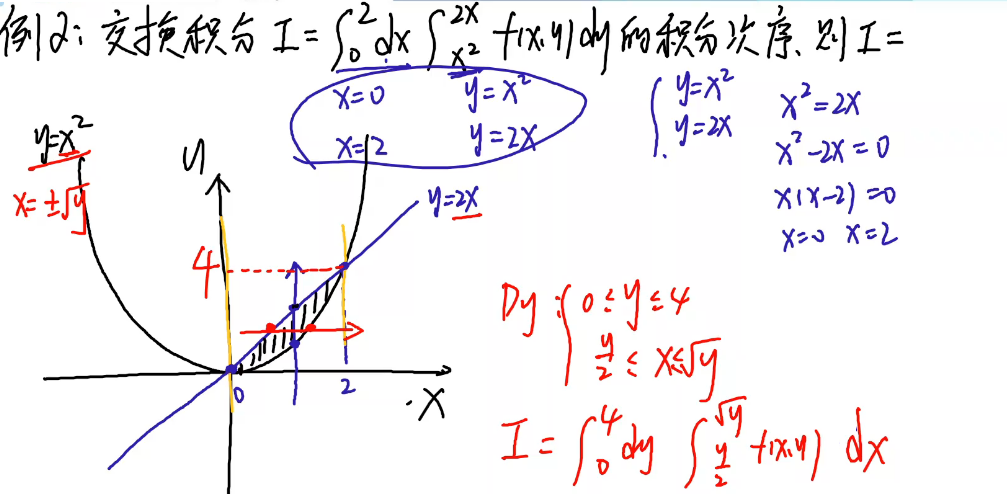 例2: 交换积分 I = ∫₀² dx ∫_{x²}^{2x} f(x,y)dy 的积分次序、则 I =
x=0 y=x²
x=2 y=2x
{ y=x²
y=2x
x²=2x
x²-2x=0
x(x-2)=0
x=0 x=2
y=x²
x=±√y
y
y=2x
4
0
2
x
Dy: { 0≤y≤4
y/2 ≤ x≤√y
I = ∫₀⁴ dy ∫_{y/2}^{√y} f(x,y) dx